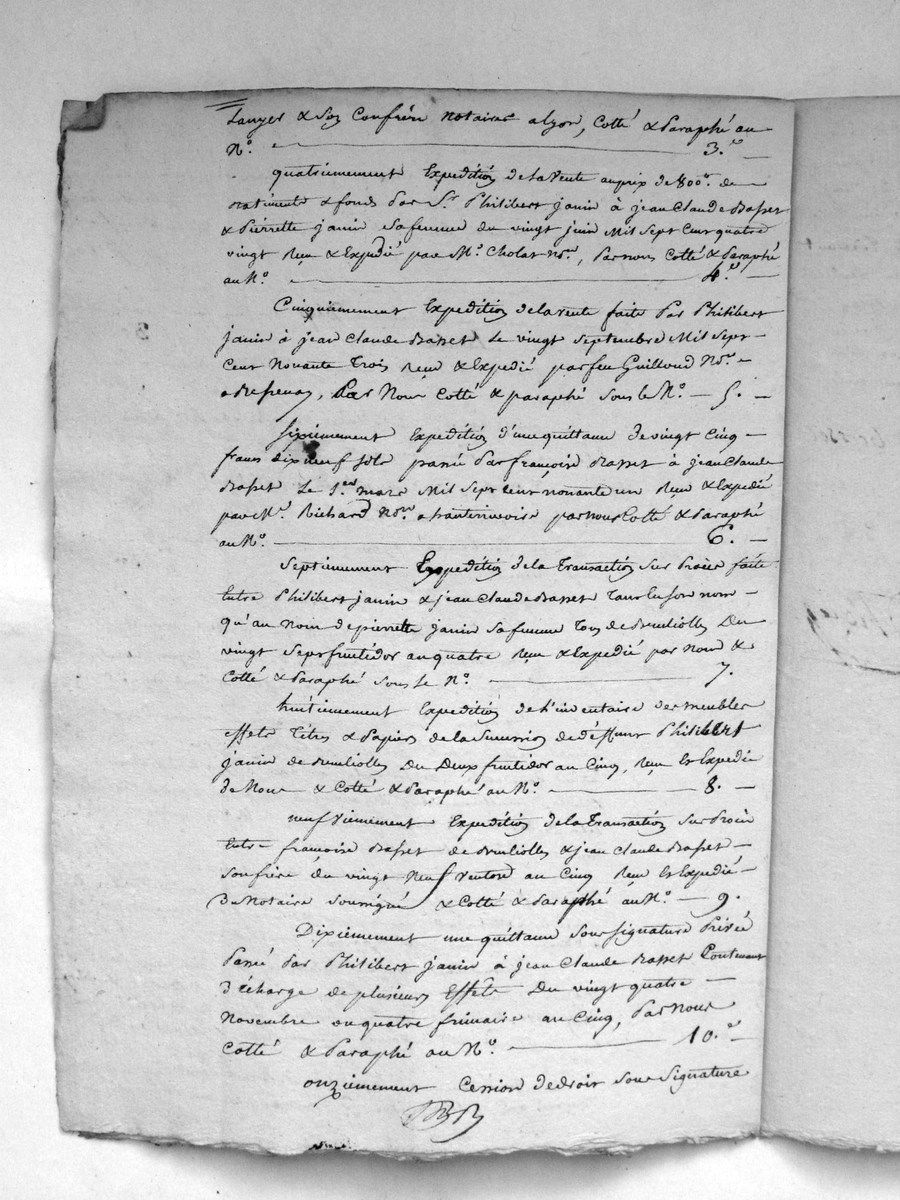 Lanyer & Son Confrère notaires a lyon, Cotté & Paraphé au
N.º 3.e
quatriemement Expedition de la vente au prix de 800 de
batiments & fonds Par S.r Philibert janin à jean Claude Basset
& Pierrette janin sa femme du vingt juin Mil Sept Cent quatre
vingt Reçu & Expedié par M.e Cholat No.re, Par nous Cotté & Paraphé
au N.º 4.e
Cinquiemement Expedition de la vente faite Par Philibert
janin à jean Claude Basset Le vingt Septembre Mil Sept
Cent Nonante Trois Reçu & Expedié par feu Guilloud No.re
, Par Nous Cotté & paraphé Sous le N.º 5.
Sixiemement Expedition d'une quittance de vingt Cinq
francs dix neuf sols passée Par françoise Basset à jean Claude
Basset Le 1.er mars Mil Sept Cent nonante un Reçu & Expedié
par M.e Richard No.re par nous Cotté & Paraphé
au N.º 6.
Septiemement Expedition de la Transaction Sur Procès faite
Entre Philibert janin & jean Claude Basset Tant En Son nom
qu'au nom de pierrette janin sa femme Tous de Brulliolles Du
vingt Sept fructidor an quatre Reçu & Expedié par nous &
Cotté & Paraphé sous le N.º 7.
huitiemement Expedition de L'inventaire des meubles
effets Titres & Papiers de la Succession de déffunt Philibert
janin de Brulliolles Du Deux fructidor an Cinq, Reçu Et Expedié
de Nous & Cotté & Paraphé au N.º 8.
neufviemement Expedition de la Transaction Sur Procès
Entre françoise Basset de Brulliolles & jean Claude Basset
Son frère du vingt Neuf ventose an Cinq Reçu Et Expedié
D Notaire Soussigné & Cotté & Paraphé au N.º 9.
Dixiemement une quittance Sous Signature Privée
Passé Par Philibert janin à jean Claude Basset Contenant
Décharge de plusieurs Effets Du vingt quatre
Novembre ou quatre frimaire an Cinq, Par Nous
Cotté & Paraphé au N.º 10.e
onziemement Cession de droit Sous Signature